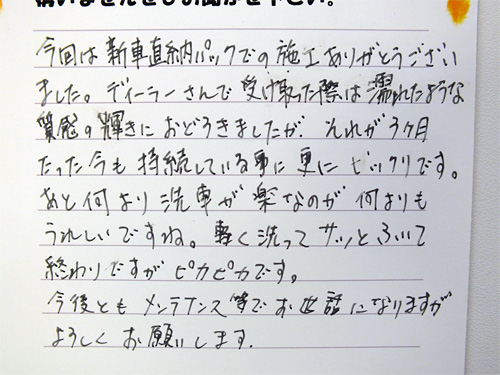 構いませんのでお聞かせ下さい。
今回は新車直納パックでの施工ありがとうござい
ました。ディーラーさんで受け取った際は濡れたような
質感の輝きにおどろきましたが、それが3ヶ月
たった今も持続している事に更にビックリです。
あと何より洗車が楽なのが何よりも
うれしいですね。軽く洗ってサッとふいて
終わりですがピカピカです。
今後ともメンテナンス等でお世話になりますが
よろしくお願いします.